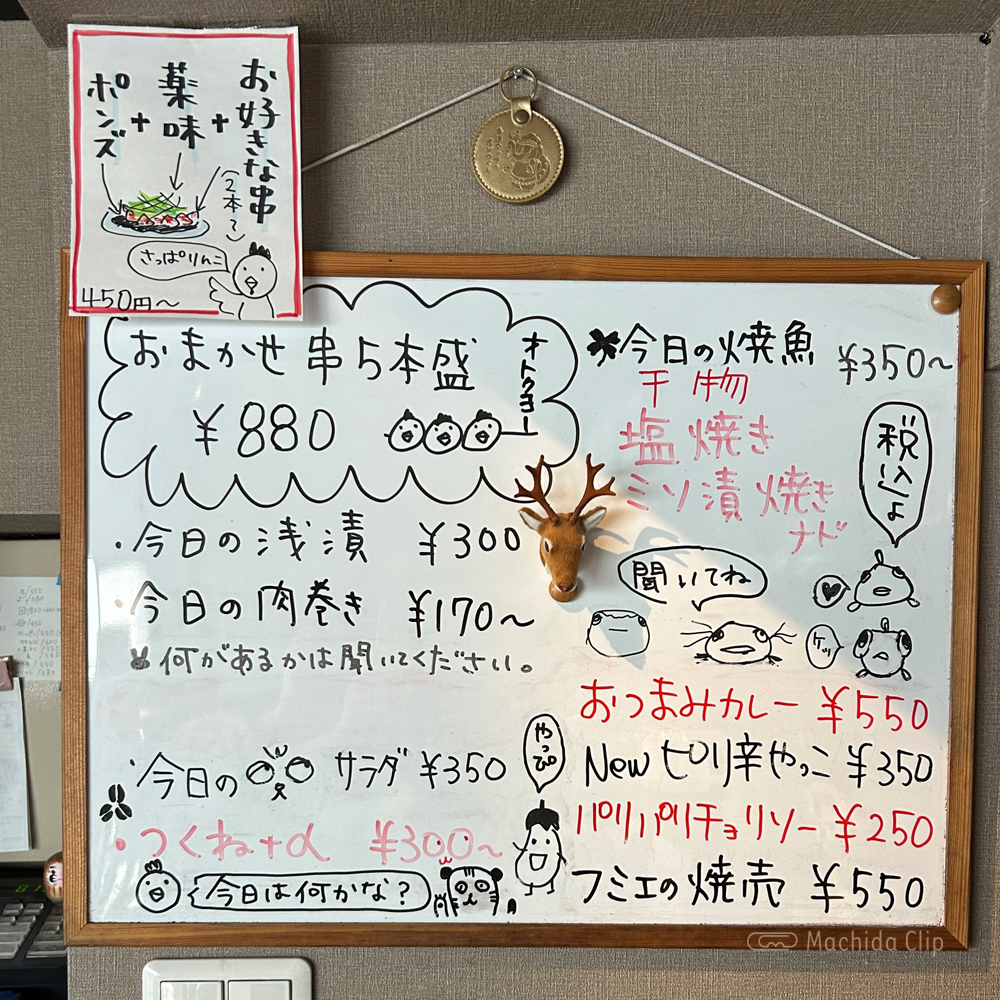 お好きな串
(2本〜)
+
薬味
+
ポンズ
さっぱりんこ
450円〜
おまかせ串5本盛
オトクヨー
¥880
・今日の浅漬 ¥300
・今日の肉巻き ¥170〜
何があるかは聞いてください。
・今日の サラダ ¥350
・つくね+α ¥300〜
今日は何かな?
今日の焼魚 ¥350〜
干物
塩焼き
ミソ漬焼き
ナド
税込よ
聞いてね
ケッ
おつまみカレー ¥550
New ピリ辛やっこ ¥350
パリパリチョリソー ¥250
フミエの焼売 ¥550
Machida Clip